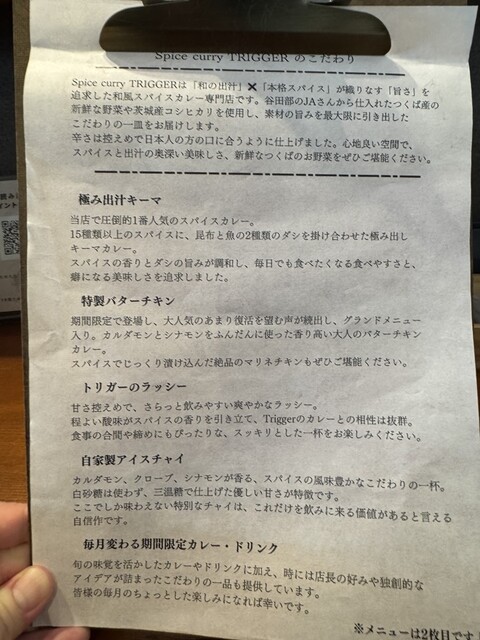 Spice curry TRIGGER のこだわり
Spice curry TRIGGERは「和の出汁」✕「本格スパイス」が織りなす「旨さ」を
追求した和風スパイスカレー専門店です。谷田部のJAさんから仕入れたつくば産の
新鮮な野菜や茨城産コシヒカリを使用し、素材の旨みを最大限に引き出した
こだわりの一皿をお届けします。
辛さは控えめで日本人の方の口に合うように仕上げました。心地良い空間で、
スパイスと出汁の奥深い美味しさ、新鮮なつくばのお野菜をぜひご堪能ください。
極み出汁キーマ
当店で圧倒的1番人気のスパイスカレー。
15種類以上のスパイスに、昆布と魚の2種類のダシを掛け合わせた極み出し
キーマカレー。
スパイスの香りとダシの旨みが調和し、毎日でも食べたくなる食べやすさと、
癖になる美味しさを追求しました。
特製バターチキン
期間限定で登場し、大人気のあまり復活を望む声が続出し、グランドメニュー
入り。カルダモンとシナモンをふんだんに使った香り高い大人のバターチキン
カレー。
スパイスでじっくり漬け込んだ絶品のマリネチキンもぜひご堪能ください。
トリガーのラッシー
甘さ控えめで、さらっと飲みやすい爽やかなラッシー。
程よい酸味がスパイスの香りを引き立て、Triggerのカレーとの相性は抜群。
食事の合間や締めにもぴったりな、スッキリとした一杯をお楽しみください。
自家製アイスチャイ
カルダモン、クローブ、シナモンが香る、スパイスの風味豊かなこだわりの一杯。
白砂糖は使わず、三温糖で仕上げた優しい甘さが特徴です。
ここでしか味わえない特別なチャイは、これだけを飲みに来る価値があると言える
自信作です。
毎月変わる期間限定カレー・ドリンク
旬の味覚を活かしたカレーやドリンクに加え、時には店長の好みや独創的な
アイデアが詰まったこだわりの一品も提供しています。
皆様の毎月のちょっとした楽しみになれば幸いです。
※メニューは2枚目です